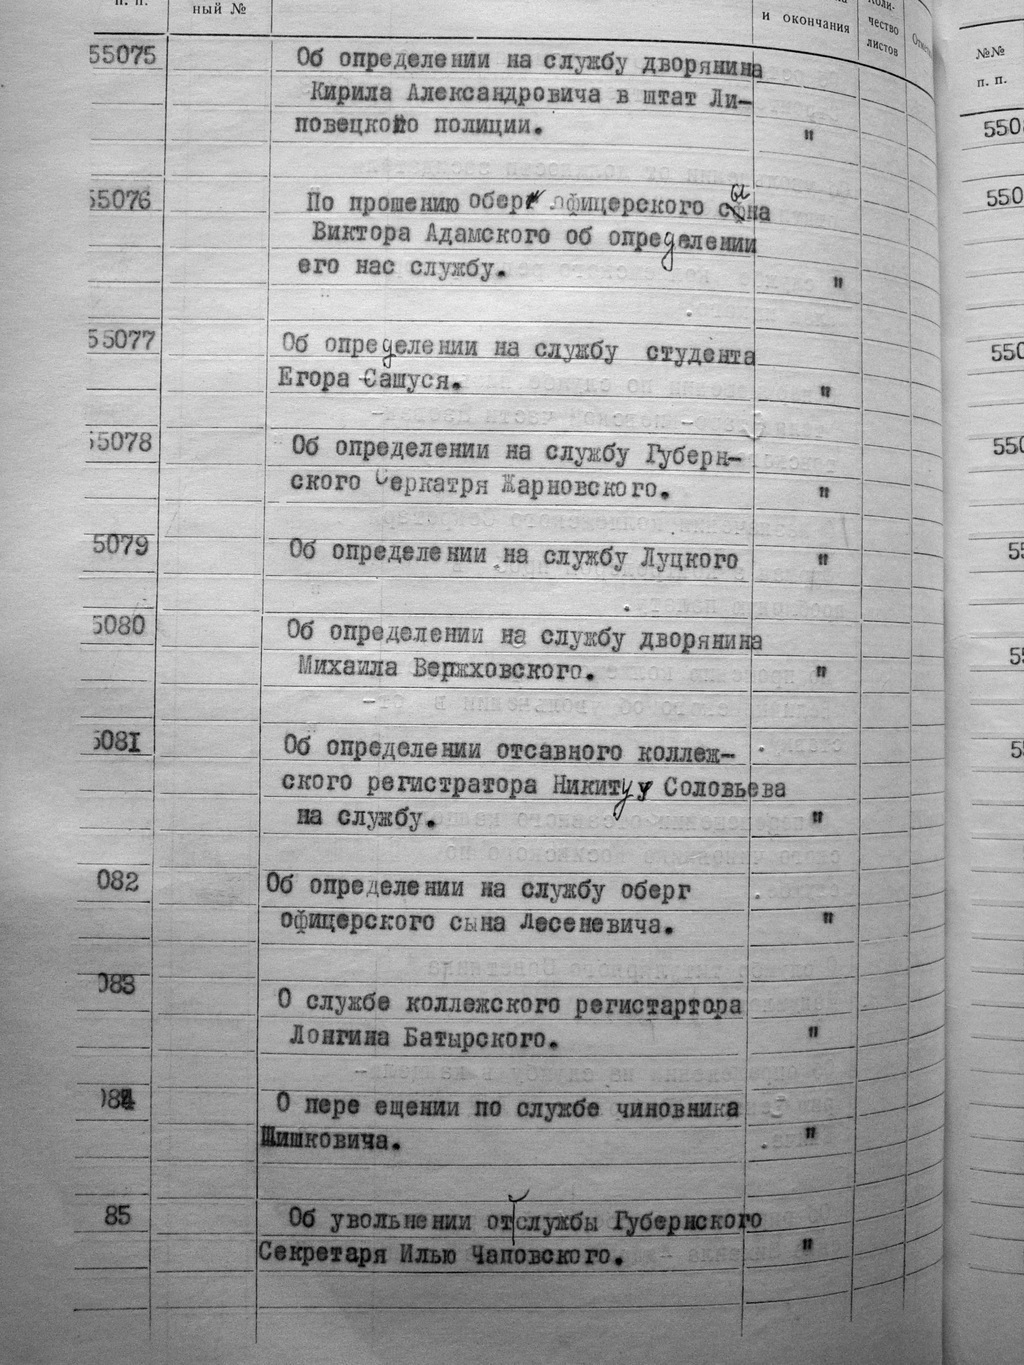 п. п.
ный №
и окончания
коли-
чество
листов
№№
п. п.
55075
Об определении на службу дворянина
Кирила Александровича в штат Ли-
повецкого полиции.
"
55076
По прошению обер офицерского сына
Виктора Адамского об определении
его нас службу.
"
55077
Об определении на службу студента
Егора Сашуся.
"
55078
Об определении на службу Губерн-
ского Серкатря Жарновского.
"
5079
Об определении на службу Луцкого
"
5080
Об определении на службу дворянина
Михаила Вержховского.
"
5081
Об определении отсавного коллеж-
ского регистратора Никиту Соловьева
на службу.
"
082
Об определении на службу оберг
офицерского сына Лесеневича.
"
083
О службе коллежского регистартора
Лонгина Батырского.
"
084
О пере ещении по службе чиновника
Шишковича.
"
85
Об увольнении от службы Губернского
Секретаря Илью Чаповского.
"